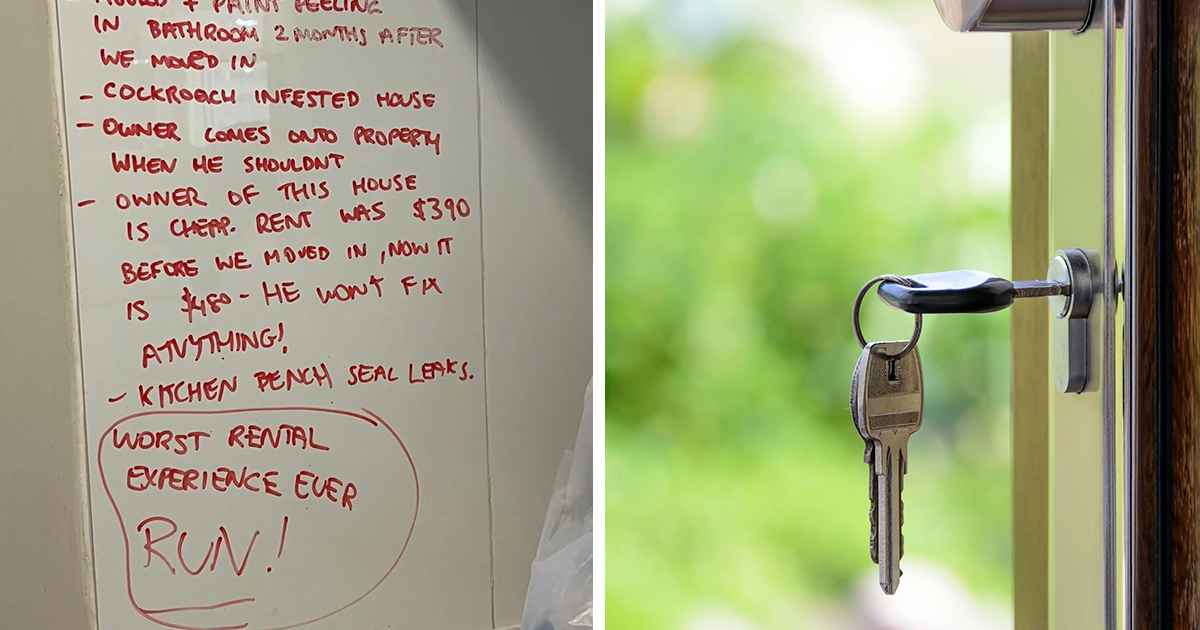 MOULD + PAINT PEELING
IN BATHROOM 2 MONTHS AFTER
WE MOVED IN
- COCKROACH INFESTED HOUSE
- OWNER COMES ONTO PROPERTY
WHEN HE SHOULDNT
- OWNER OF THIS HOUSE
IS CHEAP. RENT WAS $390
BEFORE WE MOVED IN, NOW IT
IS $480 - HE WON'T FIX
ANYTHING!
- KITCHEN BENCH SEAL LEAKS.
WORST RENTAL
EXPERIENCE EVER
RUN!